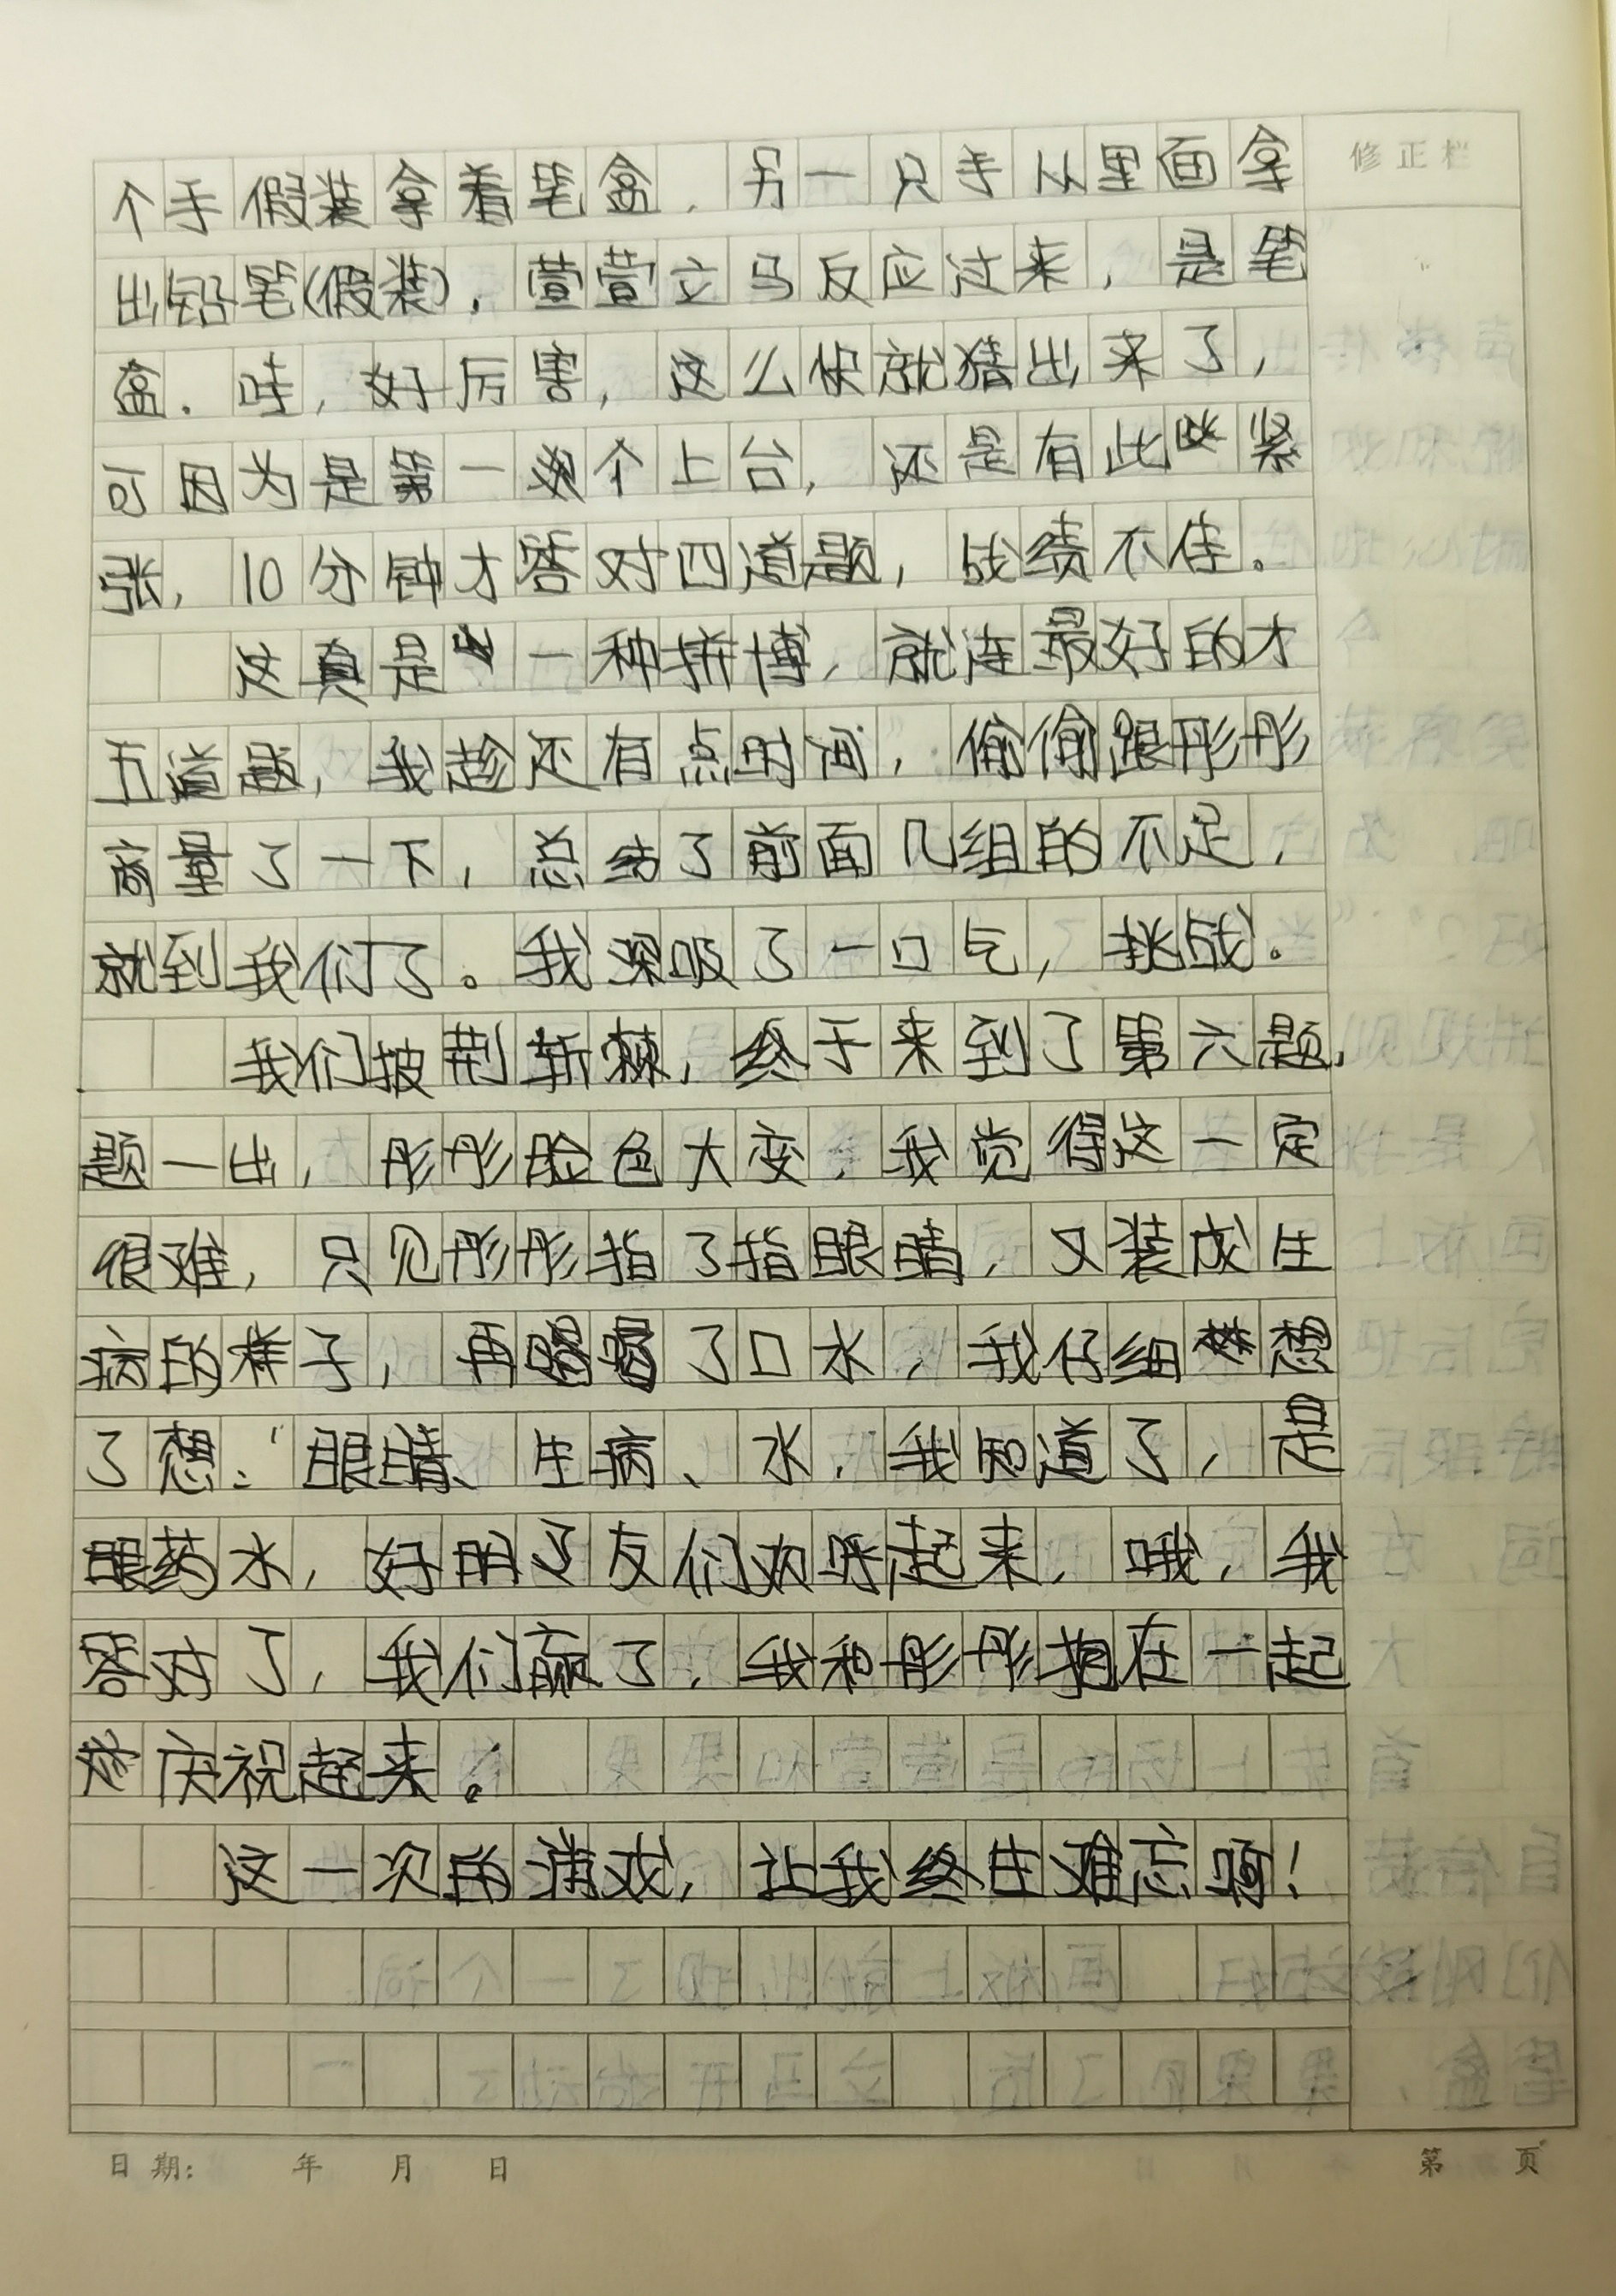 修正栏
个手假装拿着笔盒，另一只手从里面拿
出铅笔(假装)，萱萱立马反应过来，是笔
盒．哇，好厉害，这么快就猜出来了，
可因为是第一个上台，还是有些紧
张，10分钟才答对四道题，战绩不佳。
这真是一种拼博，就连最好的才
五道题，我趁还有点时间，偷偷跟彤彤
商量了一下，总结了前面几组的不足，
就到我们了。我深吸了一口气，挑战。
我们披荆斩棘，终于来到了第六题，
题一出，彤彤脸色大变，我觉得这一定
很难，只见彤彤指了指眼睛，又装成生
病的样子，再喝了口水，我仔细想
了想："眼睛、生病、水，我知道了，是
眼药水，好朋友们欢呼起来，哦，我
答对了，我们赢了，我和彤彤抱在一起
庆祝起来。
这一次的游戏，让我终生难忘啊！
日期： 年 月 日 第 页